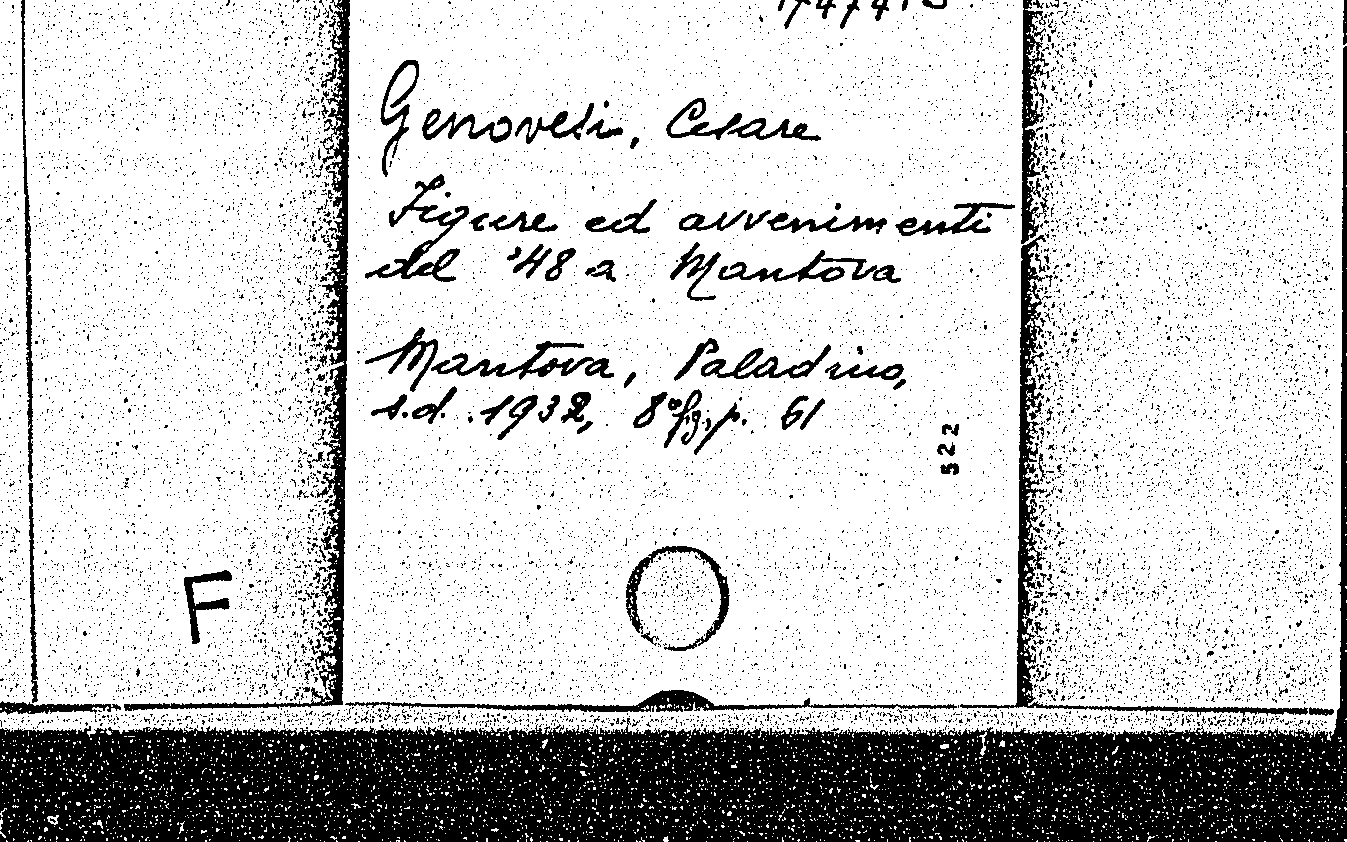 Genovesi, Cesare
Figure ed avvenimenti
del '48 a Mantova
Mantova, Paladino,
s.d. 1932, 8° fig., p. 61
522
F